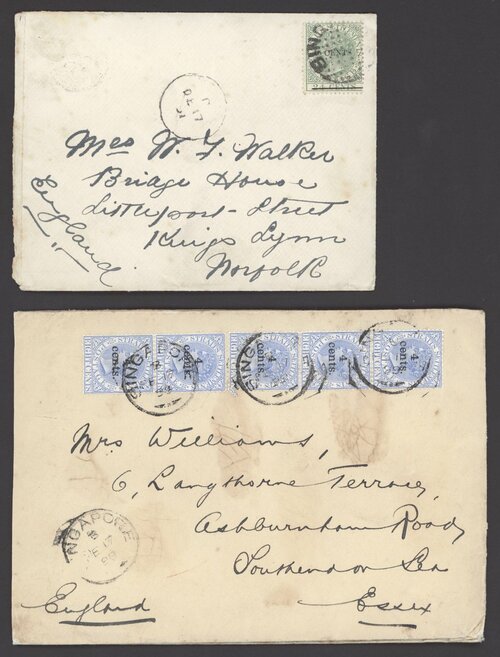 SING
Mrs W. F. Walker
Bridge House
Littleport-Street
Kings Lynn
Norfolk
England
4 cents.
4 cents.
4 cents.
4 cents.
4 cents.
SINGAPORE
SING
Mrs Williams,
6, Langthorne Terrace,
Ashburnham Road,
Southend on Sea
Essex
England
NGAPORE